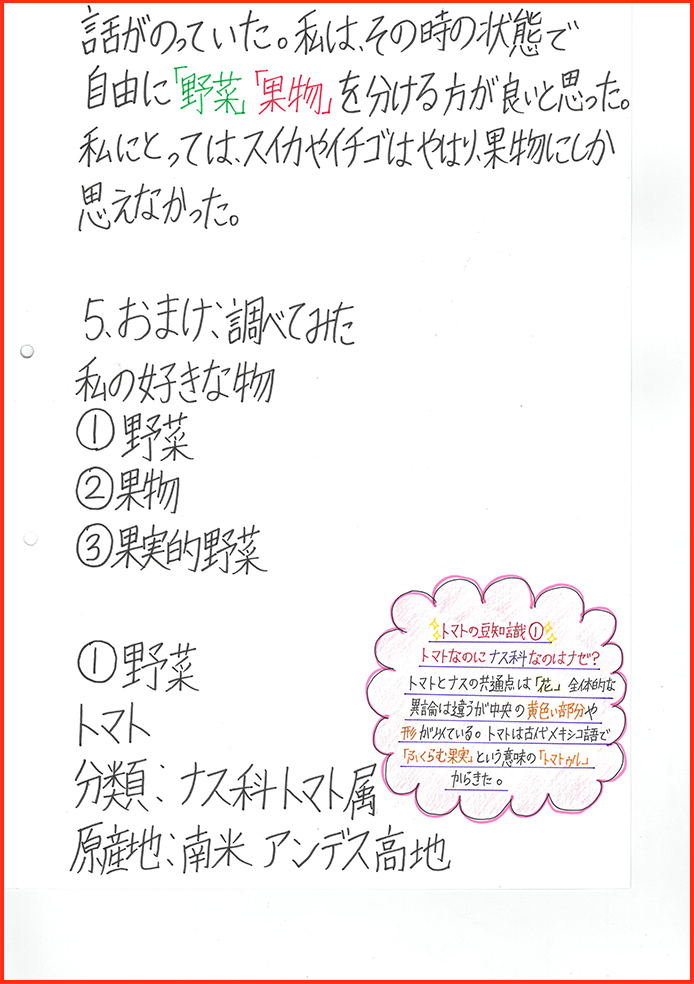 話がのっていた。私は、その時の状態で
自由に「野菜」「果物」を分ける方が良いと思った。
私にとっては、スイカやイチゴはやはり、果物にしか
思えなかった。
5、おまけ、調べてみた
私の好きな物
①野菜
②果物
③果実的野菜
①野菜
トマト
分類:ナス科トマト属
原産地:南米 アンデス高地
トマトの豆知識①
トマトなのにナス科なのはナゼ?
トマトとナスの共通点は「花」。全体的な
異論は違うが中央の黄色い部分や
形が似ている。トマトは古代メキシコ語で
「ふくらむ果実」という意味の「トマトゥル」
からきた。